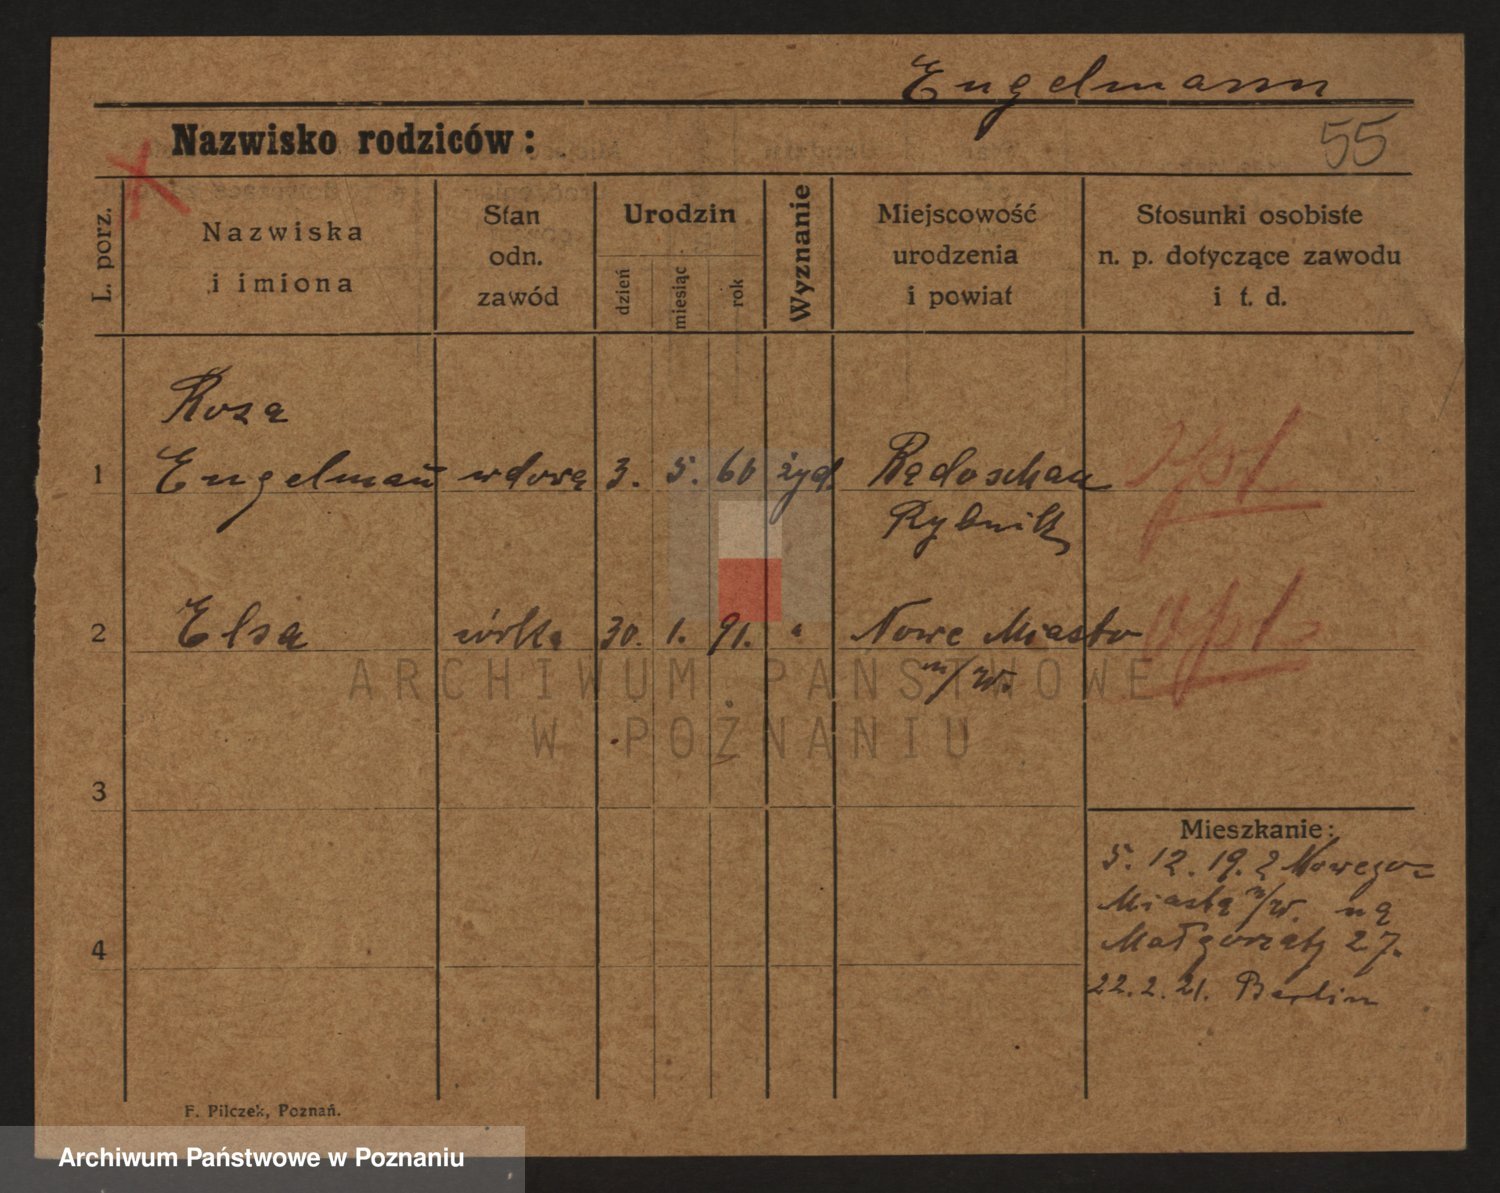 Engelmann
Nazwisko rodziców:
55
L. porz.
Nazwiska
i imiona
Stan
odn.
zawód
Urodzin
dzień
miesiąc
rok
Wyznanie
Miejscowość
urodzenia
i powiat
Stosunki osobiste
n. p. dotyczące zawodu
i t. d.
Roza
1 Engelmann wdowa 3. 5. 60 żyd. Radoschau
Rybnik
2 Elsa córka 30. 1. 91. " Nowe Miasto
n/W.
3
Mieszkanie:
5. 12. 19. z Nowego-
Miasta n/W. na
4
Małgorzaty 27.
22. 2. 21. Berlin
F. Pilczek, Poznań.
ARCHIWUM PAŃSTWOWE
W POZNANIU
Archiwum Państwowe w Poznaniu